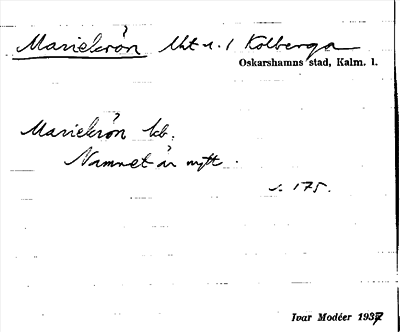 Mariekrön lht u. 1 Kolberga
Oskarshamns stad, Kalm. l.
Mariekrön lb.
Namnet är nytt.
s. 175.
Ivar Modéer 1937